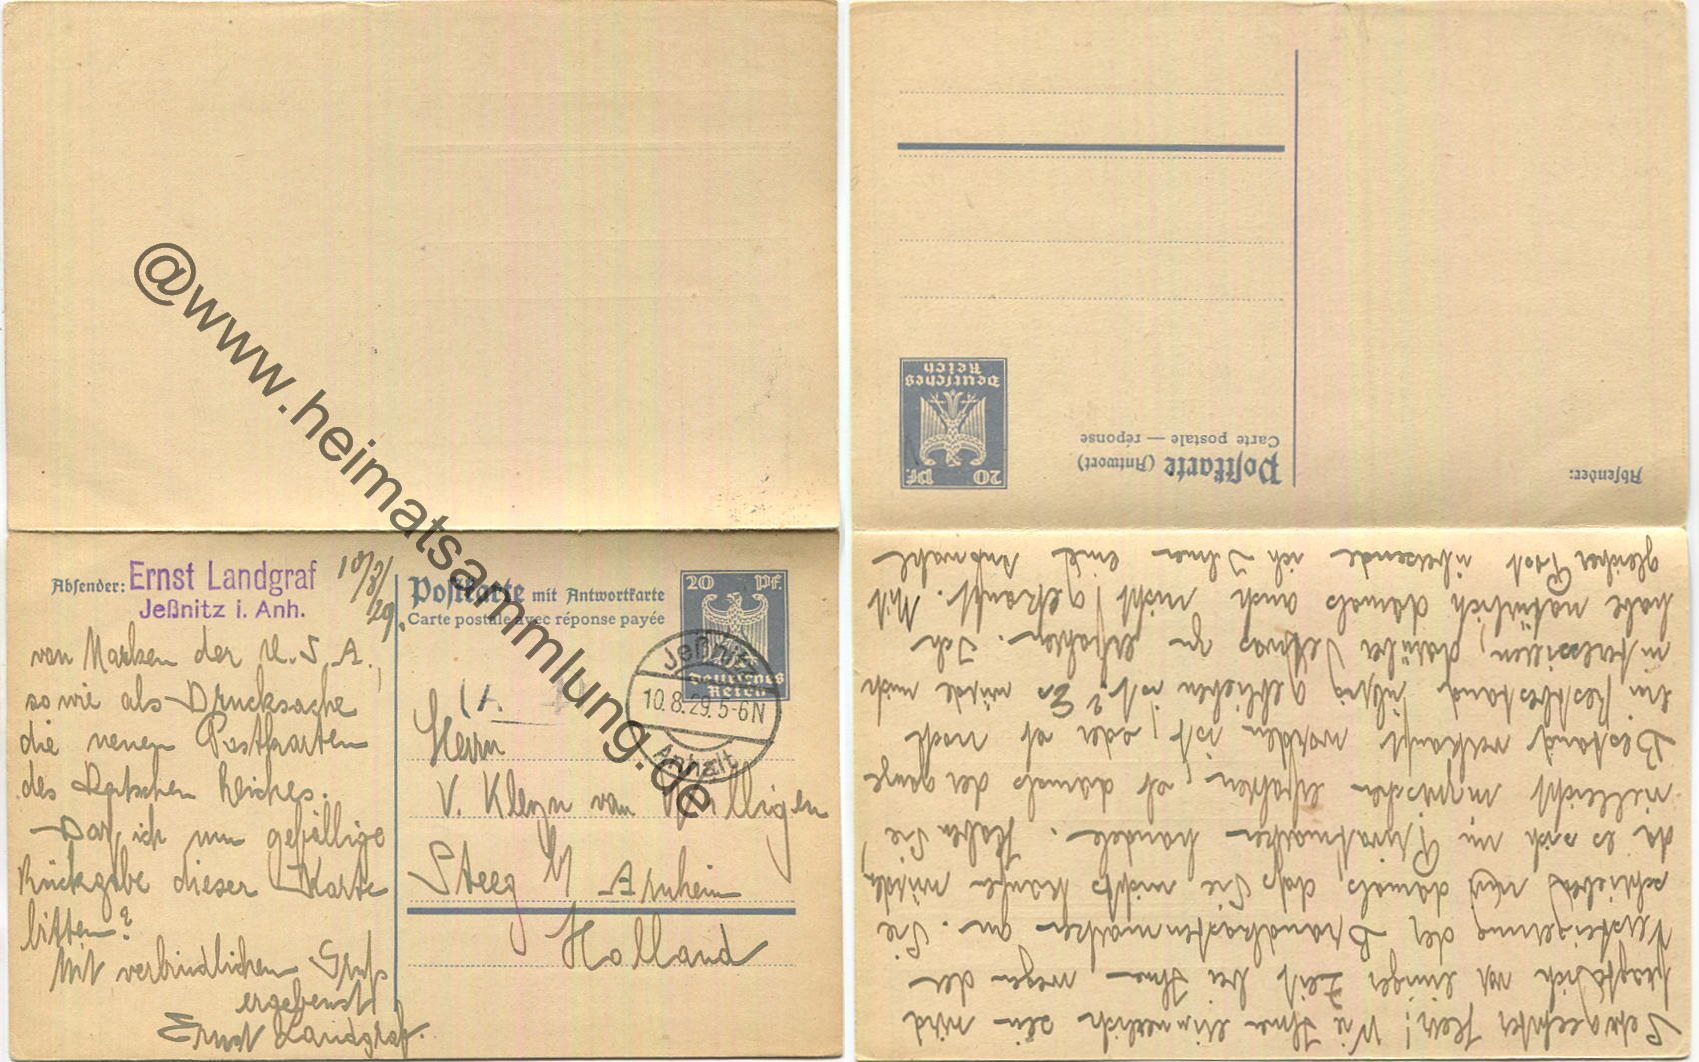 @www.heimatsammlung.de
Absender: Ernst Landgraf
Jeßnitz i. Anh.
10/8/29.
von Marken der U.S.A.,
sowie als Drucksache
die neuen Postkarten
des Deutschen Reiches.
Darf ich um gefällige
Rückgabe dieser Karte
bitten?
Mit verbindlichem Gruß
ergebenst
Ernst Landgraf.
Postkarte mit Antwortkarte
Carte postale avec réponse payée
20 Pf.
Deutsches
Reich
Jeßnitz
10.8.29.5-6N
Anhalt
Herrn
V. Kleyn van
Steeg b/ Arnheim
Holland
Absender:
Postkarte (Antwort)
Carte postale — réponse
20 Pf.
Deutsches
Reich
Sehr geehrter Herr! Wie Ihnen erinnerlich sein wird
fragte ich vor einiger Zeit bei Ihnen wegen der
Versteigerung der Brandkastenmarken an. Sie
schrieben mir damals, daß Sie nichts kaufen würden,
da es sich um Privatmarken handele. Haben Sie
vielleicht inzwischen erfahren, ob damals der ganze
Bestand verkauft worden ist, oder ob noch
ein Restbestand übrig geblieben ist? Es würde mich
interessieren, darüber etwas zu erfahren. Ich
habe natürlich damals auch nicht gekauft. Mit
gleicher Post übersende ich Ihnen eine Auswahl